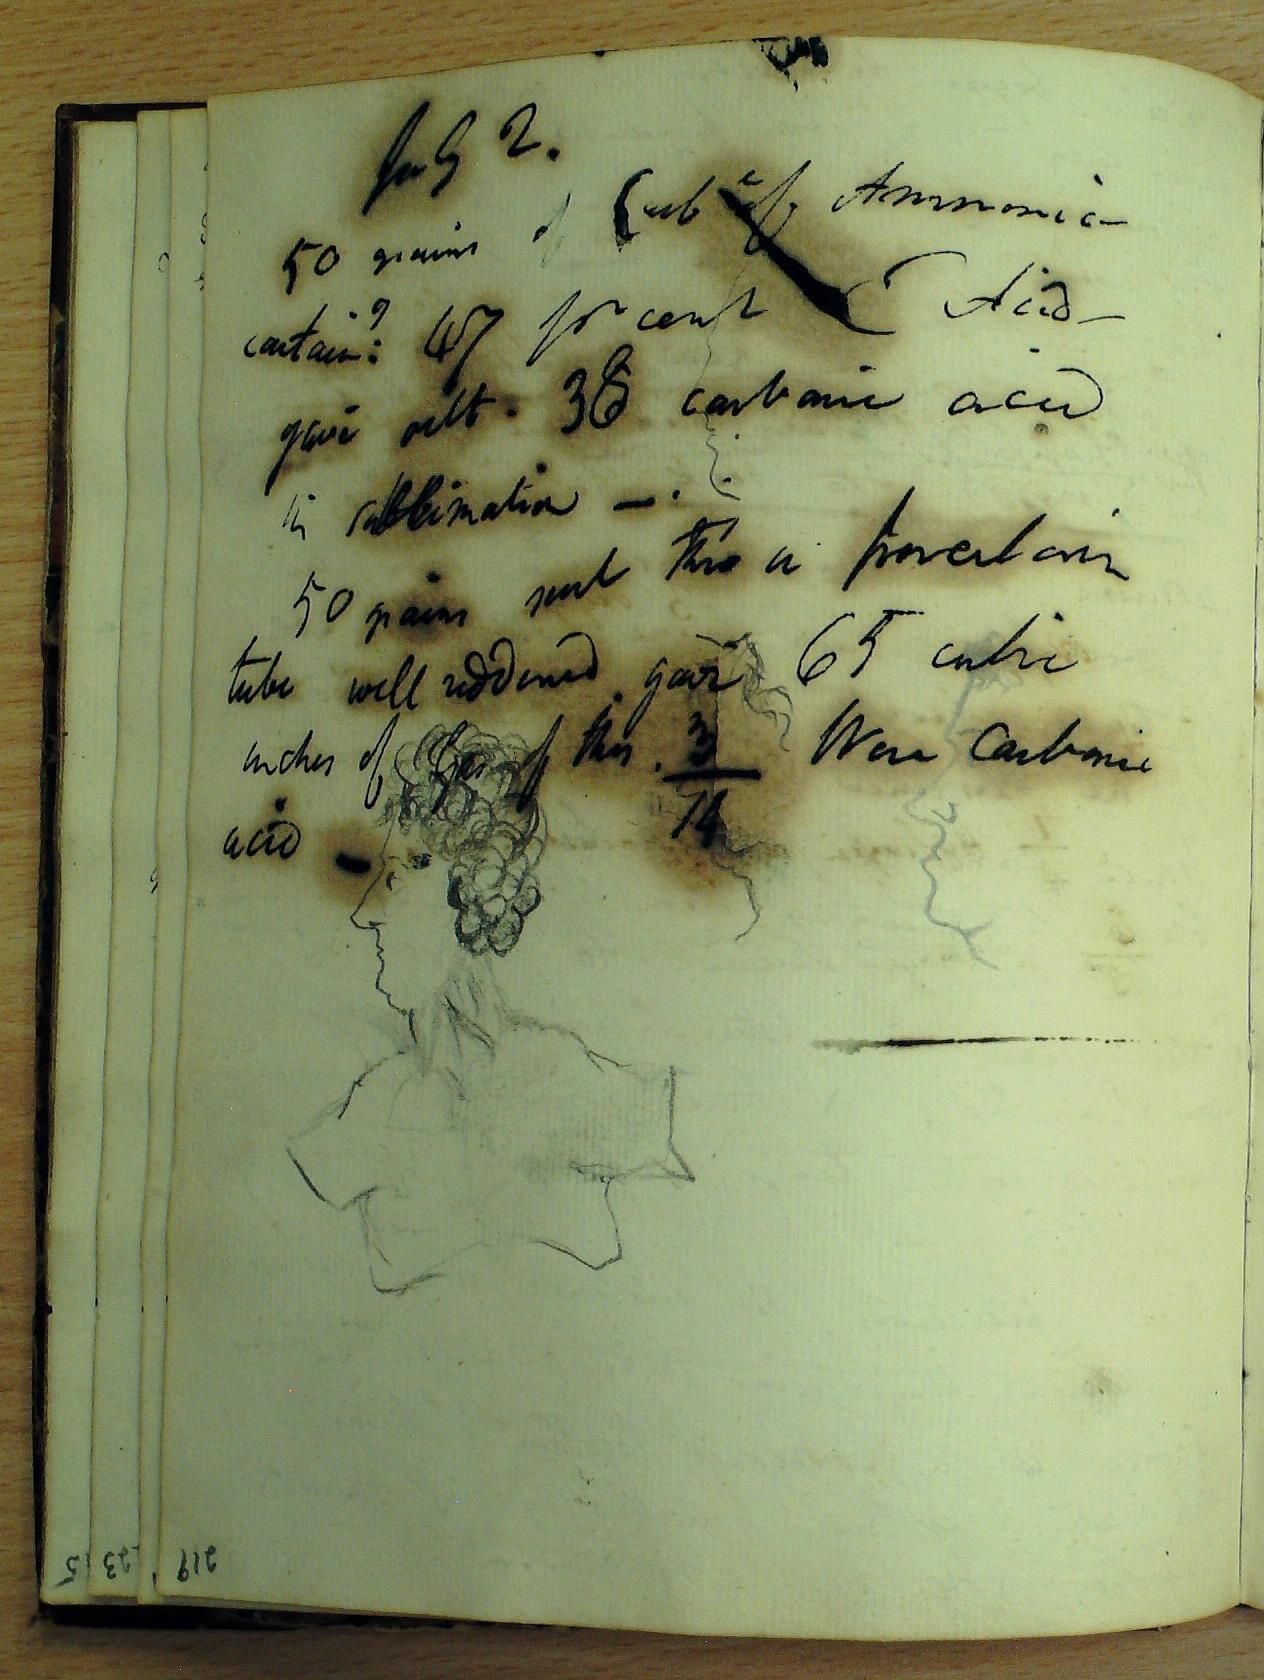 July 2.
50 grains of Carb.e of Ammonia
contain? 47 per cent C Acid
gave out. 38 carbonic acid
in sublimation —.
50 grains sent thro a porcelain
tube well reddened. gave 65 cubic
inches of Gas of this. 3/74 Were Carbonic
acid —
219